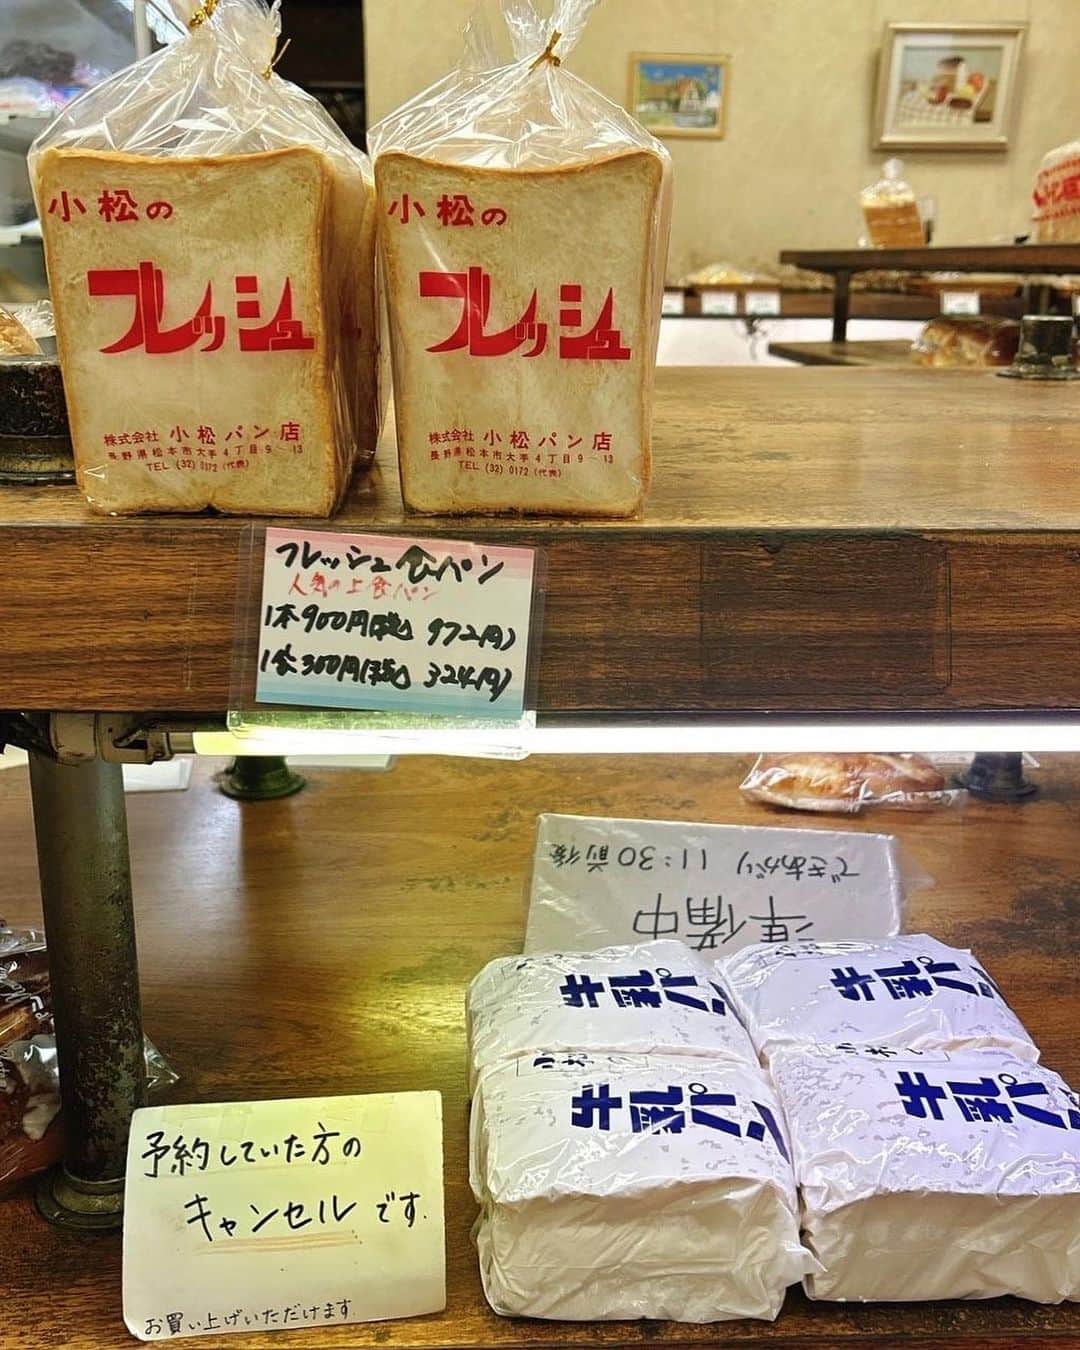 小松の
フレッシュ
株式会社 小松パン店
長野県松本市大手4丁目9-13
TEL (32) 0172 (代表)
小松の
フレッシュ
株式会社 小松パン店
長野県松本市大手4丁目9-13
TEL (32) 0172 (代表)
フレッシュ食パン
人気の上食パン
1本900円(税込 972円)
1斤300円(税込 324円)
できあがり 11:30前後
準備中
牛乳パン
牛乳パン
小松の
牛乳パン
牛乳パン
予約していた方の
キャンセルです.
お買い上げいただけます.